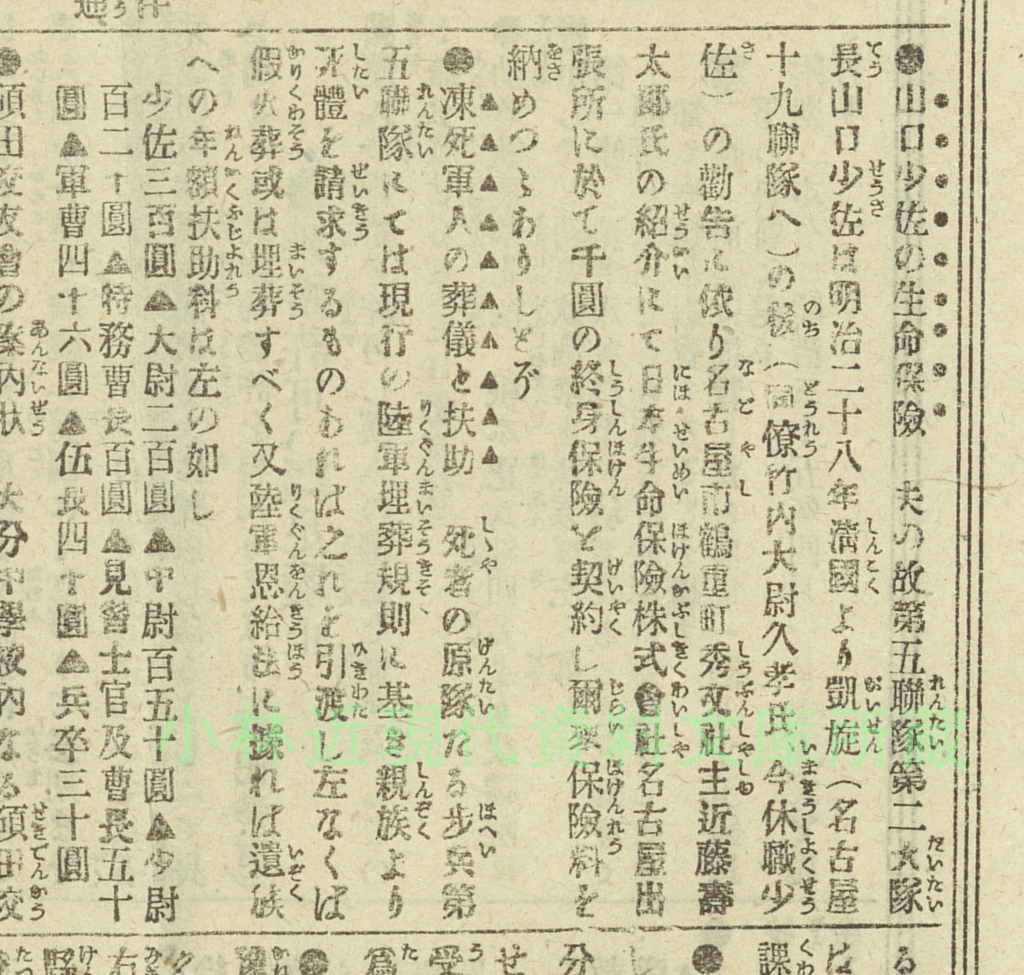 ●山口少佐の生命保險 夫の故第五聯隊第二大隊
長山口少佐は明治二十八年淸國より凱旋（名古屋
十九聯隊へ）の後（同僚竹内大尉久孝氏今休職少
佐）の勸告に依り名古屋市鶴重町秀文社主近藤壽
太郎氏の紹介にて日本生命保險株式會社名古屋出
張所に於て千圓の終身保險を契約し爾來保險料を
納めつゝありしとぞ
●凍死軍人の葬儀と扶助 死者の原隊たる步兵第
五聯隊にては現行の陸軍埋葬規則に基き親族より
死體を請求するものあれば之れを引渡し左なくば
假火葬或は埋葬すべく又陸軍恩給法に據れば遺族
への年額扶助料は左の如し
少佐三百圓▲大尉二百圓▲中尉百五十圓▲少尉
百二十圓▲特務曹長百圓▲見習士官及曹長五十
圓▲軍曹四十六圓▲伍長四十圓▲兵卒三十圓
小林近現代資料文庫所蔵